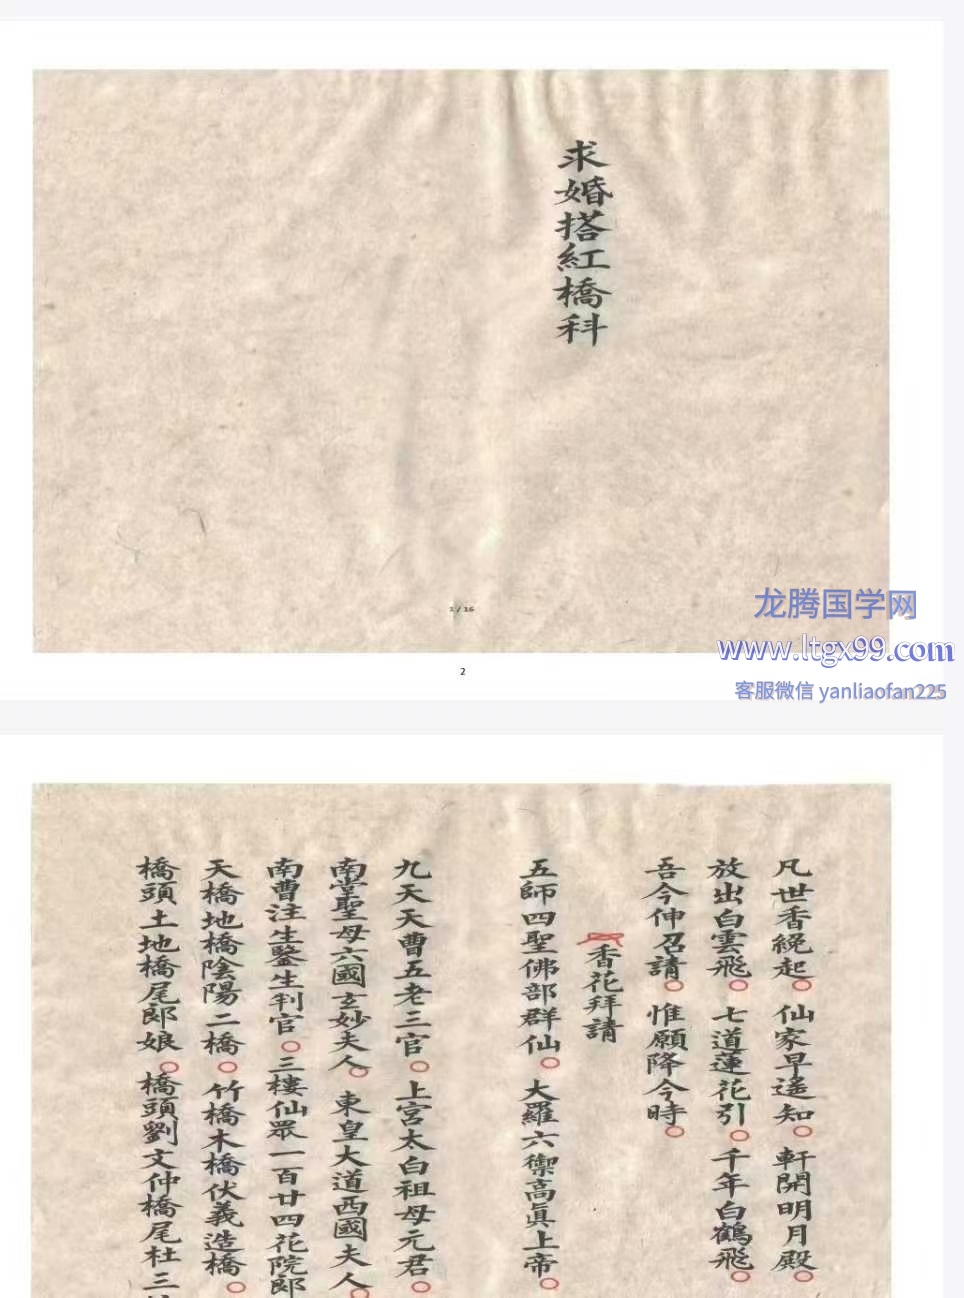 求婚搭紅橋科
1 / 16
龙腾国学网
www.ltgx99.com
2
客服微信 yanliaofan225
凡世香纔起 仙家早遥知 軒開明月殿
放出白雲飛 七道蓮花引 千年白鶴飛
吾今伸召請 惟願降今時
香花拜請
五師四聖佛部群仙 大羅六禦高眞上帝
九天天曹五老三官 上宮太白祖母元君
南堂聖母六國玄妙夫人 東皇大道西國夫人
南曹注生鑒生判官 三樓仙眾一百廿四花院郎
天橋地橋陰陽二橋 竹橋木橋伏義造橋
橋頭土地橋尾郎娘 橋頭劉文仲橋尾杜三